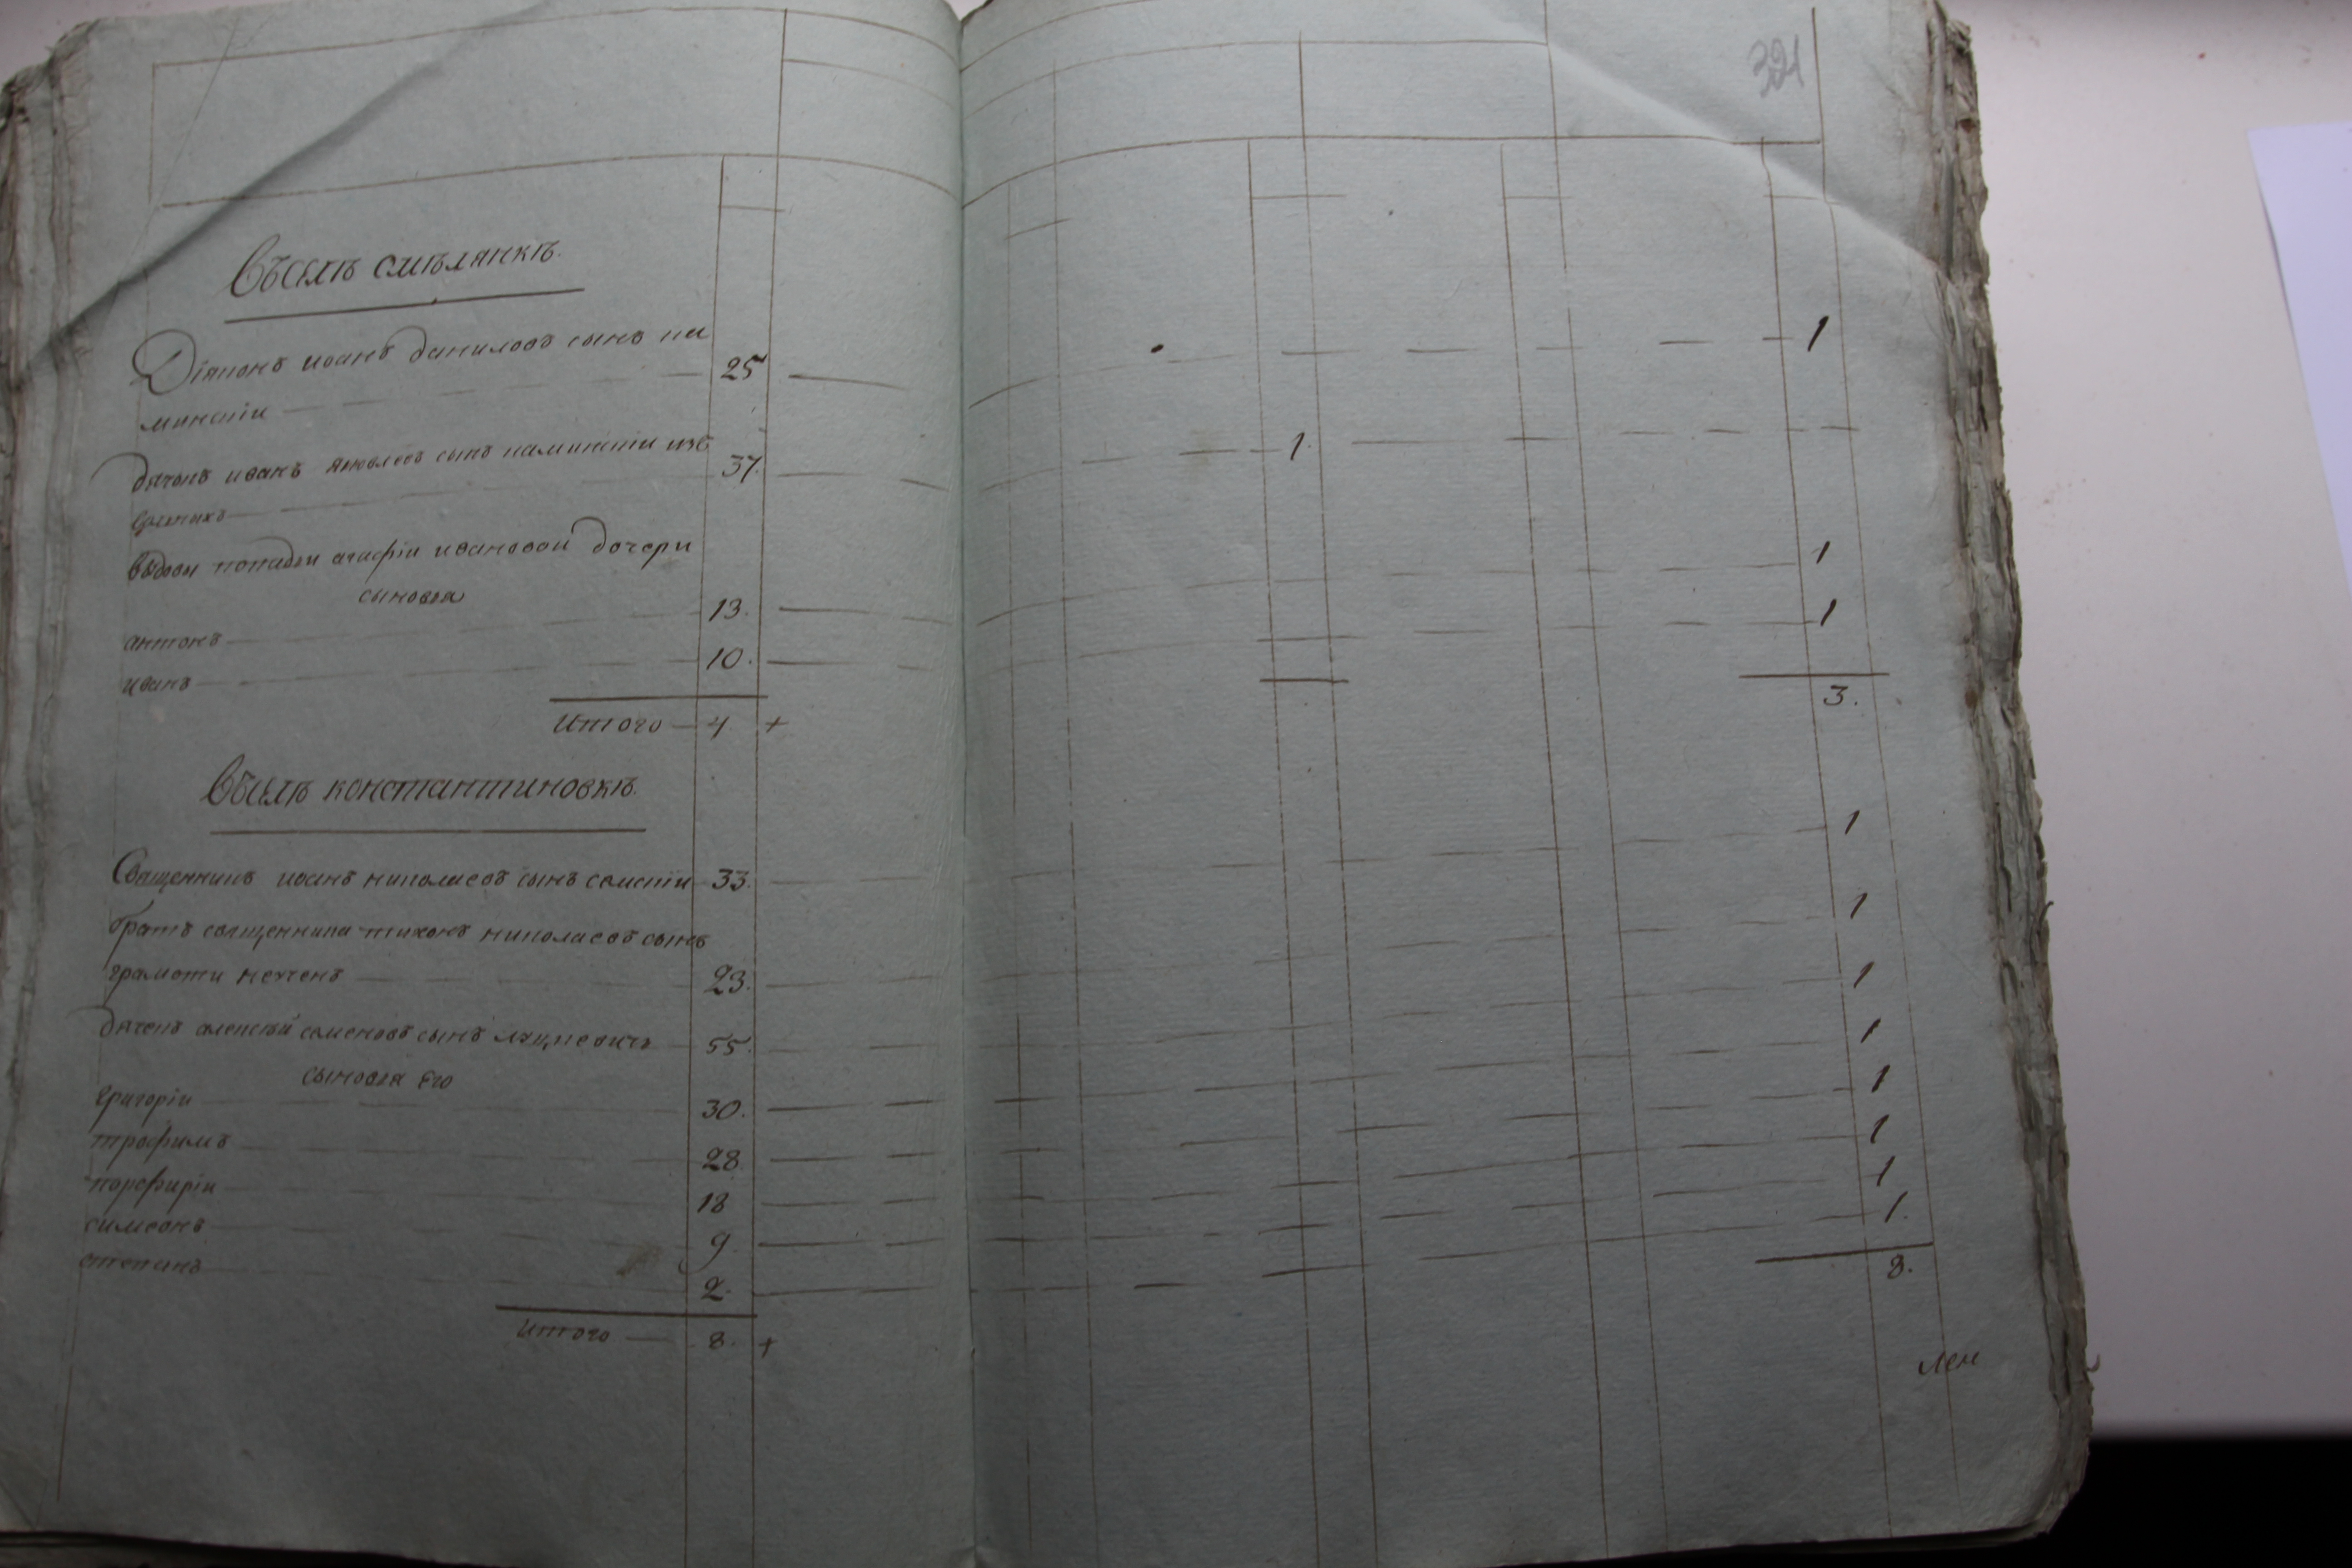 321
Въ селѣ смѣлянкѣ.
Діяконъ иоанъ даниловъ сынъ ка
минскіи 25 1
дячокъ иванъ яковлевъ сынъ каминскіи изъ
37. 1.
вдовы попадьи агафіи ивановои дочери
сыновья
антонъ 13. 1
иванъ 10. 1
Итого 4 + 3.
Въ селѣ константиновкѣ.
Священникъ иоанъ николаевъ сынъ 33. 1
братъ священника тихонъ николаевъ сынъ
грамоти неученъ 23. 1
дячокъ алексѣй семеновъ сынъ 55. 1
сыновья его
григоріи 30. 1
трофимъ 28 1
порфиріи 18 1
симеонъ 9 1
степанъ 2. 1.
Итого 8. + 8.